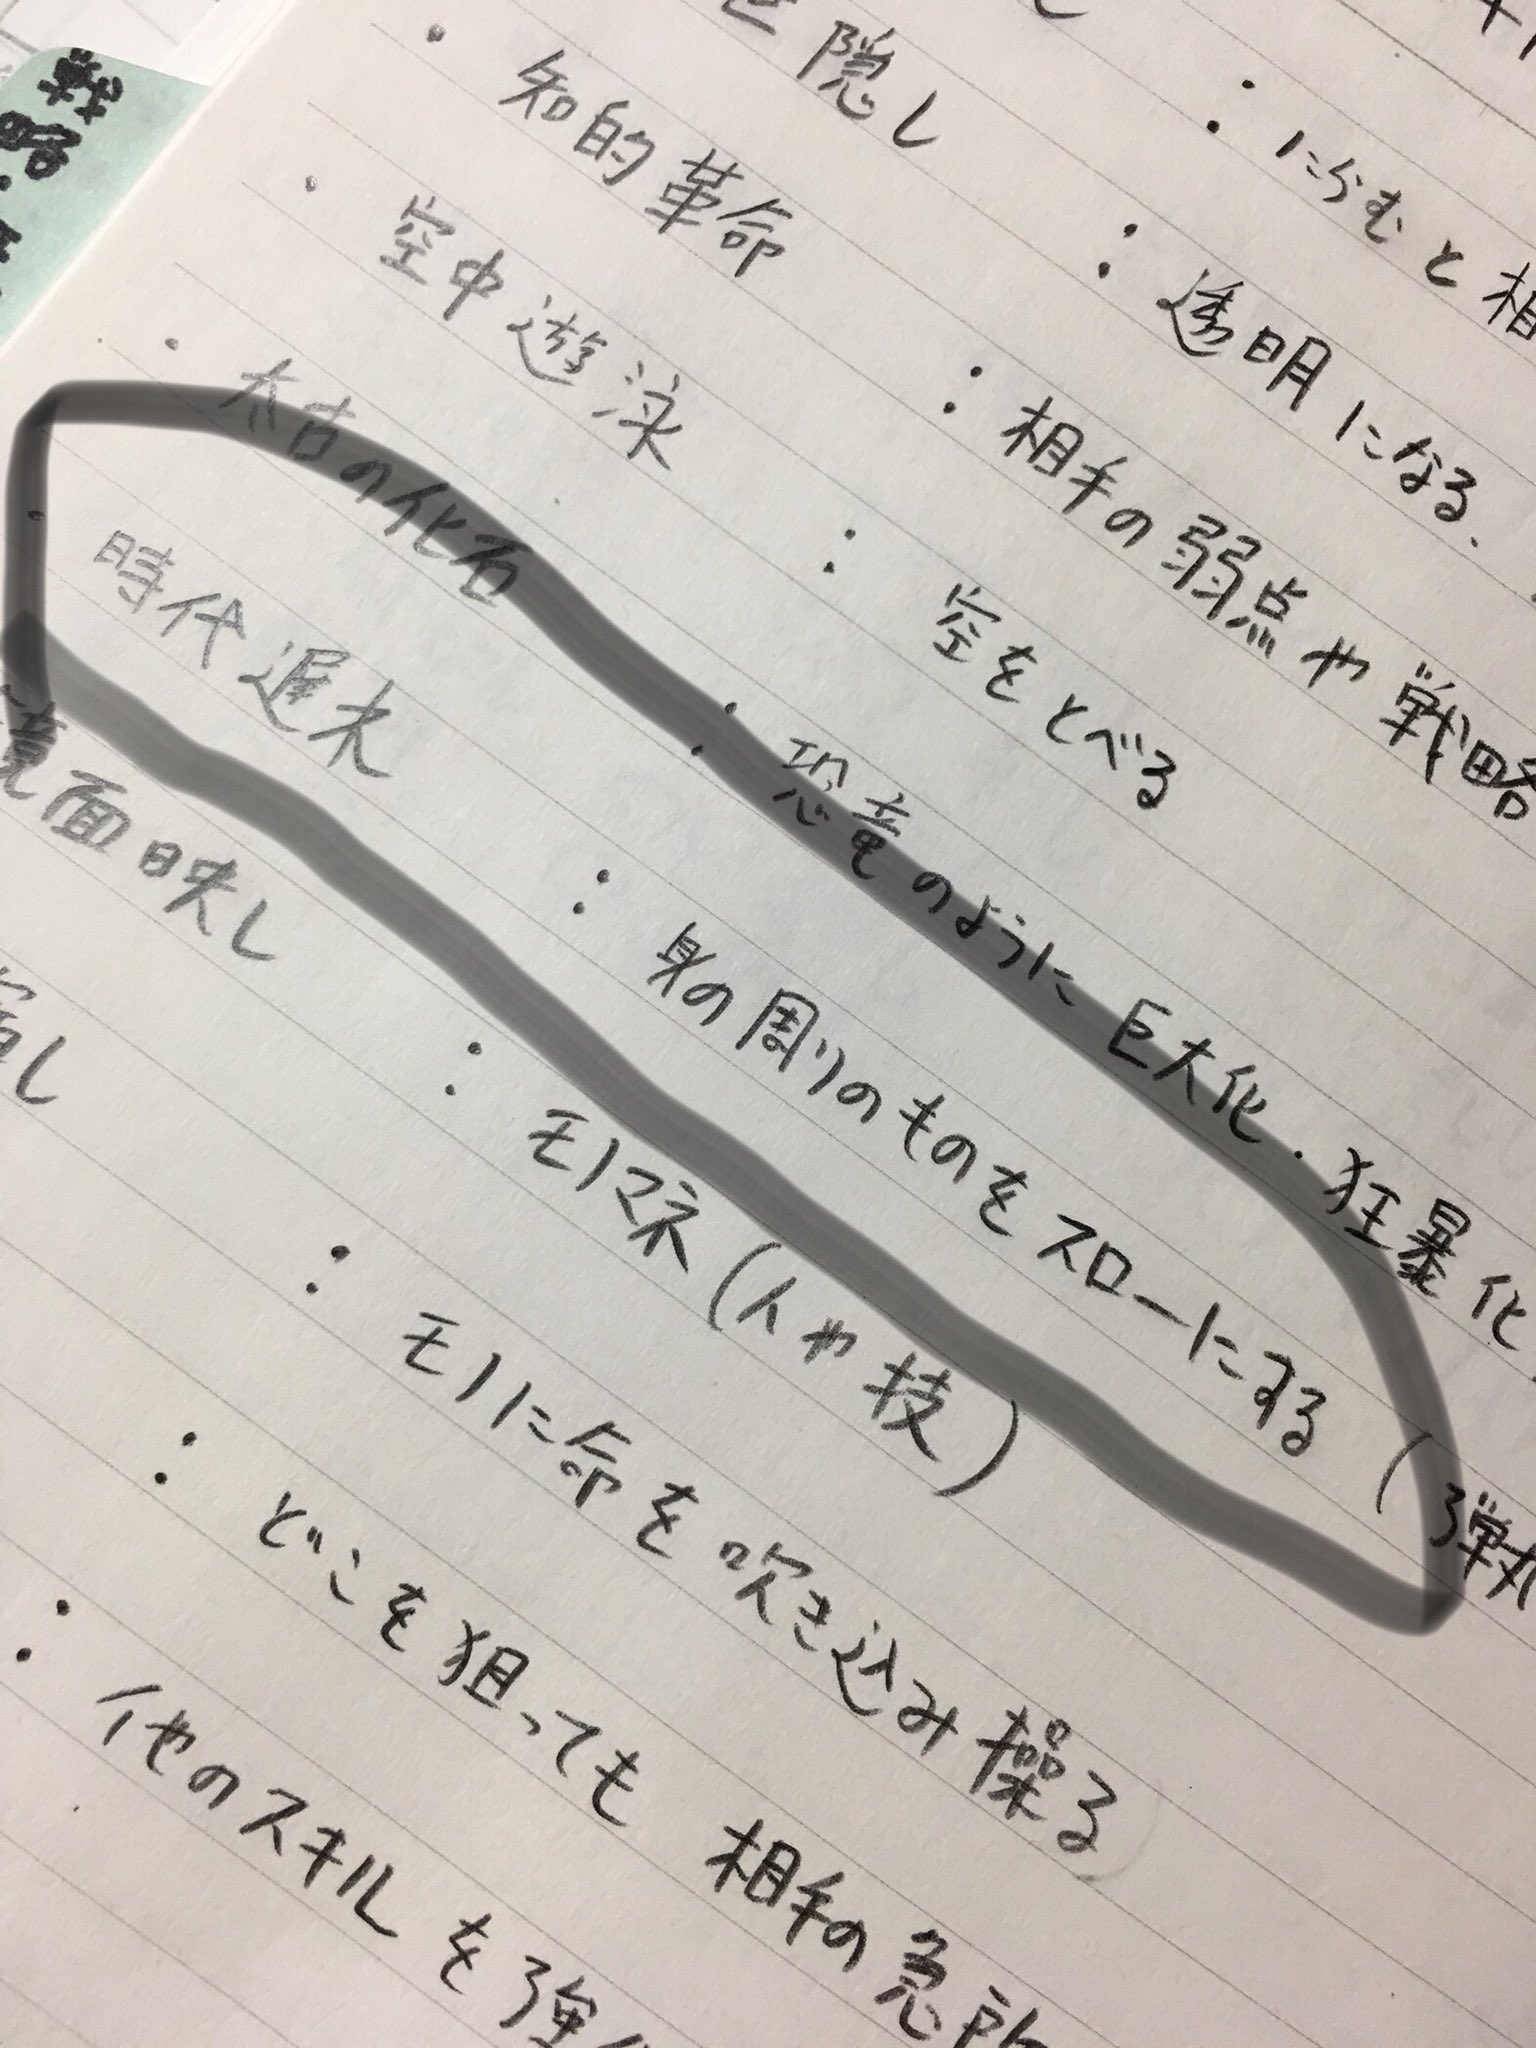 戦略
隠し
：にらむと相
・知的革命
：透明になる、
・空中遊泳
：相手の弱点や戦略
・太古の化石
：空をとべる
・時代遅れ
：恐竜のように巨大化・狂暴化
鏡面映し
：身の周りのものをスローにする（弾丸
：モノマネ（人や技）
し
：モノに命を吹き込み操る
：どこを狙っても相手の急所
：他のスキルを強